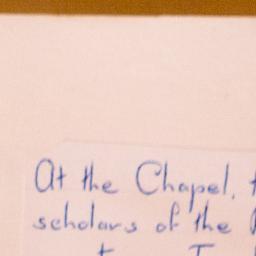 At the Chapel,
scholars of the